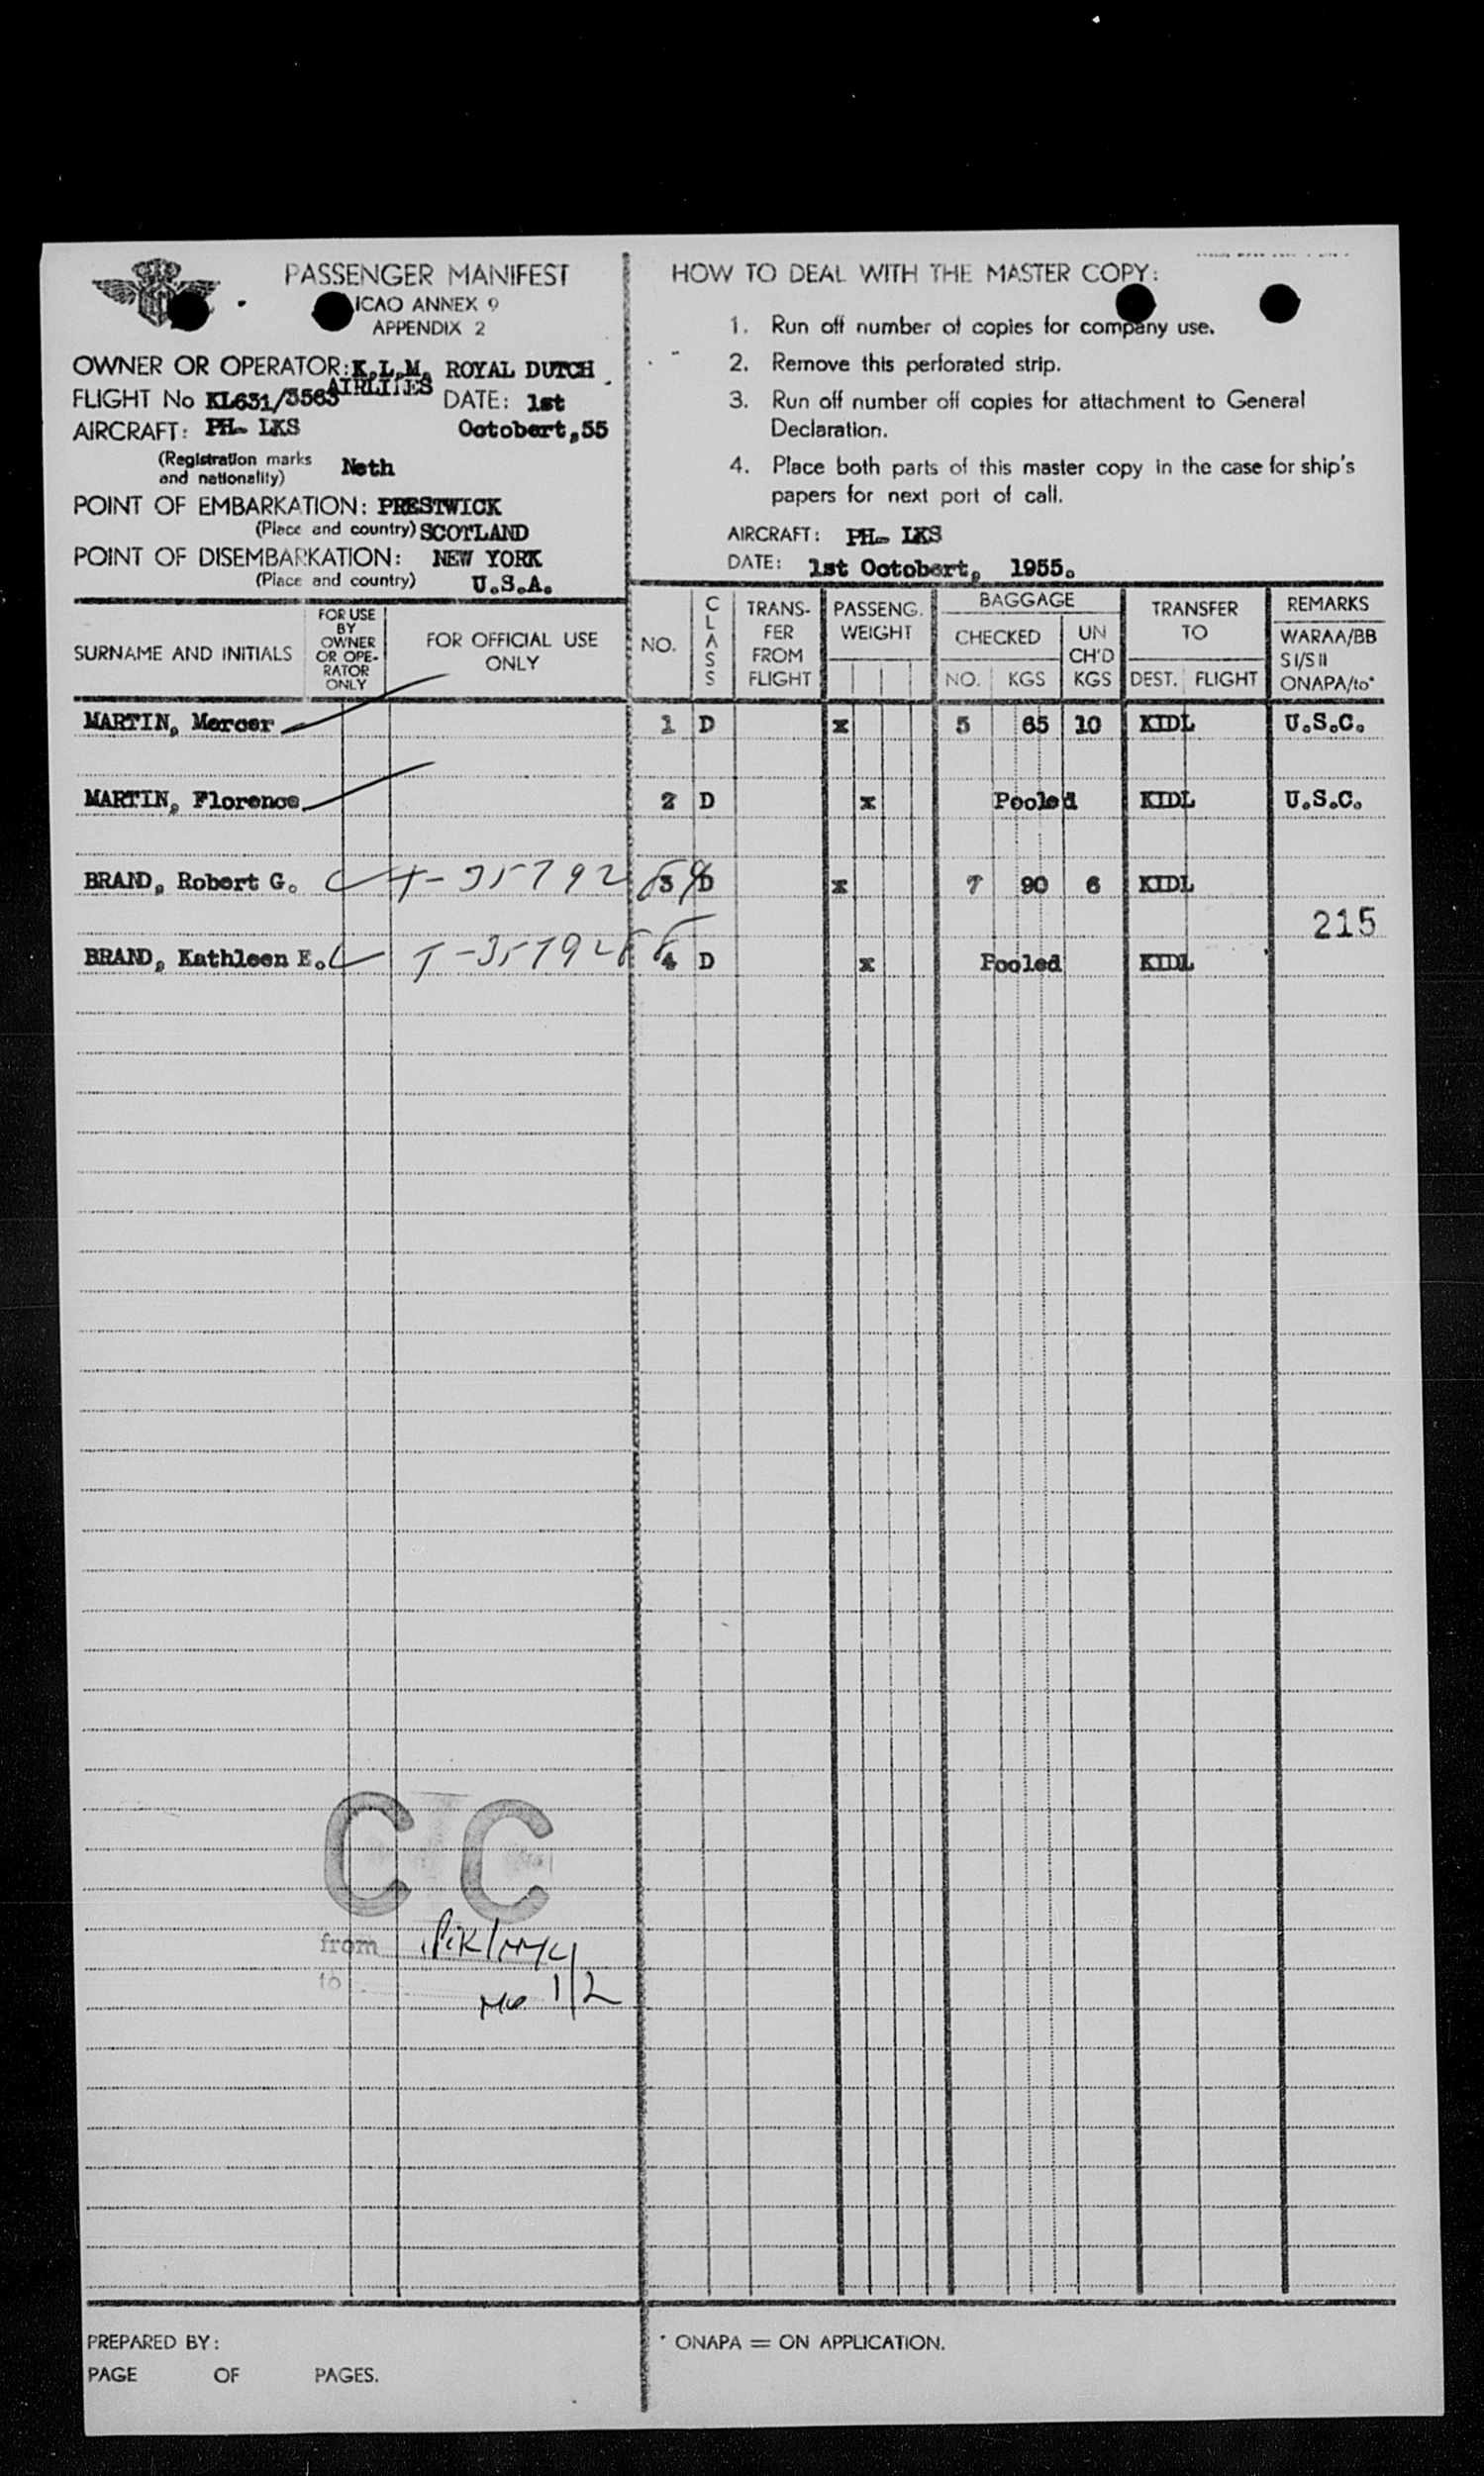 PASSENGER MANIFEST
ICAO ANNEX 9
APPENDIX 2
OWNER OR OPERATOR: K.L.M. ROYAL DUTCH
AIRLINES
FLIGHT No KL631/3563 DATE: 1st
AIRCRAFT: PH- LKS Octobert,55
(Registration marks
and nationality) Neth
POINT OF EMBARKATION: PRESTWICK
(Place and country) SCOTLAND
POINT OF DISEMBARKATION: NEW YORK
(Place and country) U.S.A.
HOW TO DEAL WITH THE MASTER COPY:
1. Run off number of copies for company use.
2. Remove this perforated strip.
3. Run off number off copies for attachment to General
Declaration.
4. Place both parts of this master copy in the case for ship's
papers for next port of call.
AIRCRAFT: PH- LKS
DATE: 1st Octobert, 1955.
SURNAME AND INITIALS
FOR USE
BY
OWNER
OR OPE-
RATOR
ONLY
FOR OFFICIAL USE
ONLY
NO.
CLASS
TRANS-
FER
FROM
FLIGHT
PASSENG.
WEIGHT
BAGGAGE
CHECKED
NO. KGS
UN
CH'D
KGS
TRANSFER
TO
DEST. FLIGHT
REMARKS
WARAA/BB
SI/SII
ONAPA/to*
MARTIN, Mercer 1 D x 5 65 10 KIDL U.S.C.
MARTIN, Florence 2 D x Pooled KIDL U.S.C.
BRAND, Robert G. 3 D x 7 90 6 KIDL
215
BRAND, Kathleen E. 4 D x Pooled KIDL
C C
from PIK/NYC
to
1/2
PREPARED BY:
PAGE OF PAGES.
* ONAPA = ON APPLICATION.